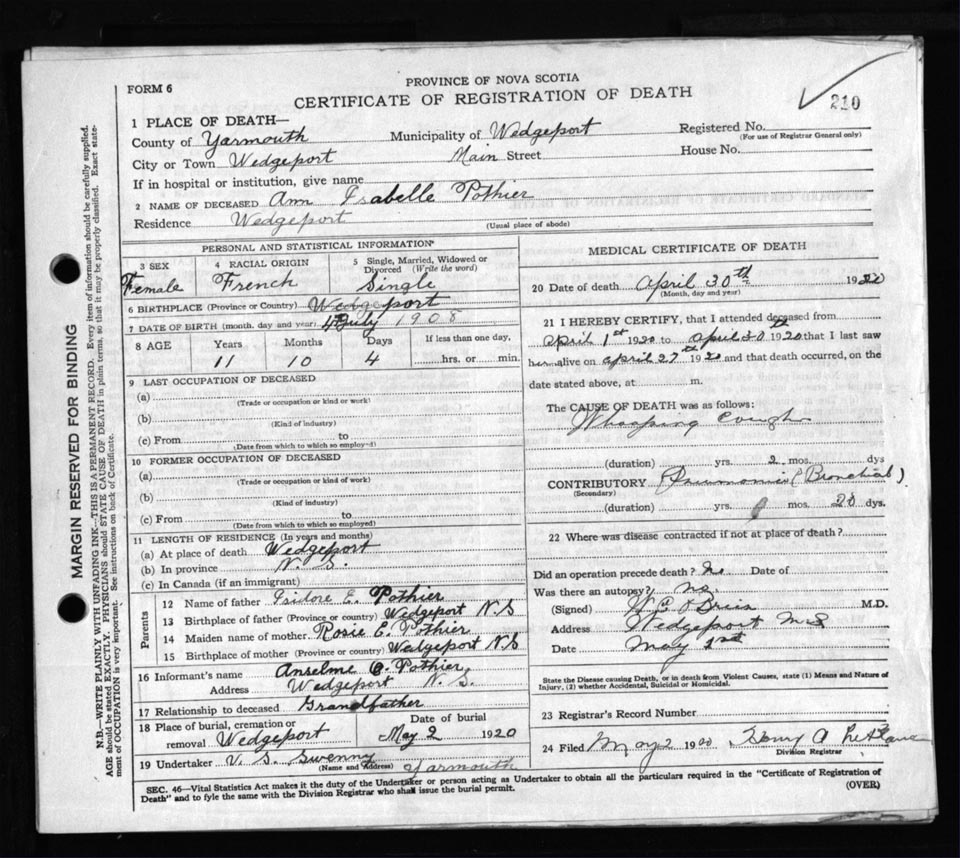 FORM 6
PROVINCE OF NOVA SCOTIA
CERTIFICATE OF REGISTRATION OF DEATH
210
1 PLACE OF DEATH—
County of Yarmouth Municipality of Wedgeport Registered No.
(For use of Registrar General only)
City or Town Wedgeport Main Street House No.
If in hospital or institution, give name
2 NAME OF DECEASED Ann Isabelle Pothier
Residence Wedgeport
(Usual place of abode)
PERSONAL AND STATISTICAL INFORMATION
3 SEX 4 RACIAL ORIGIN 5 Single, Married, Widowed or Divorced (Write the word)
Female French Single
6 BIRTHPLACE (Province or Country) Wedgeport
7 DATE OF BIRTH (month, day and year) 4 July 1908
8 AGE Years Months Days If less than one day,
11 10 4 hrs. or min.
9 LAST OCCUPATION OF DECEASED
(a)
(Trade or occupation or kind or work)
(b)
(Kind of industry)
(c) From to
(Date from which to which so employed)
10 FORMER OCCUPATION OF DECEASED
(a)
(Trade or occupation or kind of work)
(b)
(Kind of industry)
(c) From to
(Date from which to which so employed)
11 LENGTH OF RESIDENCE (In years and months)
(a) At place of death Wedgeport
(b) In province N. S.
(c) In Canada (if an immigrant)
Parents
12 Name of father Isidore E. Pothier
13 Birthplace of father (Province or country) Wedgeport N.S
14 Maiden name of mother Rosie E. Pothier
15 Birthplace of mother (Province or country) Wedgeport N.S
16 Informant's name Anselme C. Pothier
Address Wedgeport N. S.
17 Relationship to deceased Grandfather
18 Place of burial, cremation or removal Wedgeport
Date of burial May 2 1920
19 Undertaker V. S. Swenny Yarmouth
(Name and Address)
MEDICAL CERTIFICATE OF DEATH
20 Date of death April 30th 1920
(Month, day and year)
21 I HEREBY CERTIFY, that I attended deceased from
April 1st 1920 to April 30th 1920 that I last saw
her alive on april 27th 1920 and that death occurred, on the
date stated above, at m.
The CAUSE OF DEATH was as follows:
Whooping Cough
(duration) yrs. 2 mos. dys
CONTRIBUTORY Pneumonia (Bronchial)
(Secondary)
(duration) yrs. mos. 20 dys.
22 Where was disease contracted if not at place of death?
Did an operation precede death? No Date of
Was there an autopsy? no.
(Signed) M.D.
Address Wedgeport N.S
Date May 1st
State the Disease causing Death, or in death from Violent Causes, state (1) Means and Nature of
Injury, (2) whether Accidental, Suicidal or Homicidal.
23 Registrar's Record Number
24 Filed May 2 1920 Henry A
Division Registrar
SEC. 46—Vital Statistics Act makes it the duty of the Undertaker or person acting as Undertaker to obtain all the particulars required in the "Certificate of Registration of
Death" and to fyle the same with the Division Registrar who shall issue the burial permit.
(OVER)
MARGIN RESERVED FOR BINDING
N.B.—WRITE PLAINLY WITH UNFADING INK—THIS IS A PERMANENT RECORD. Every item of information should be carefully supplied.
AGE should be stated EXACTLY. PHYSICIANS should STATE CAUSE OF DEATH in plain terms, so that it may be properly classified. Exact statement of OCCUPATION is very important. See instructions on back of Certificate.